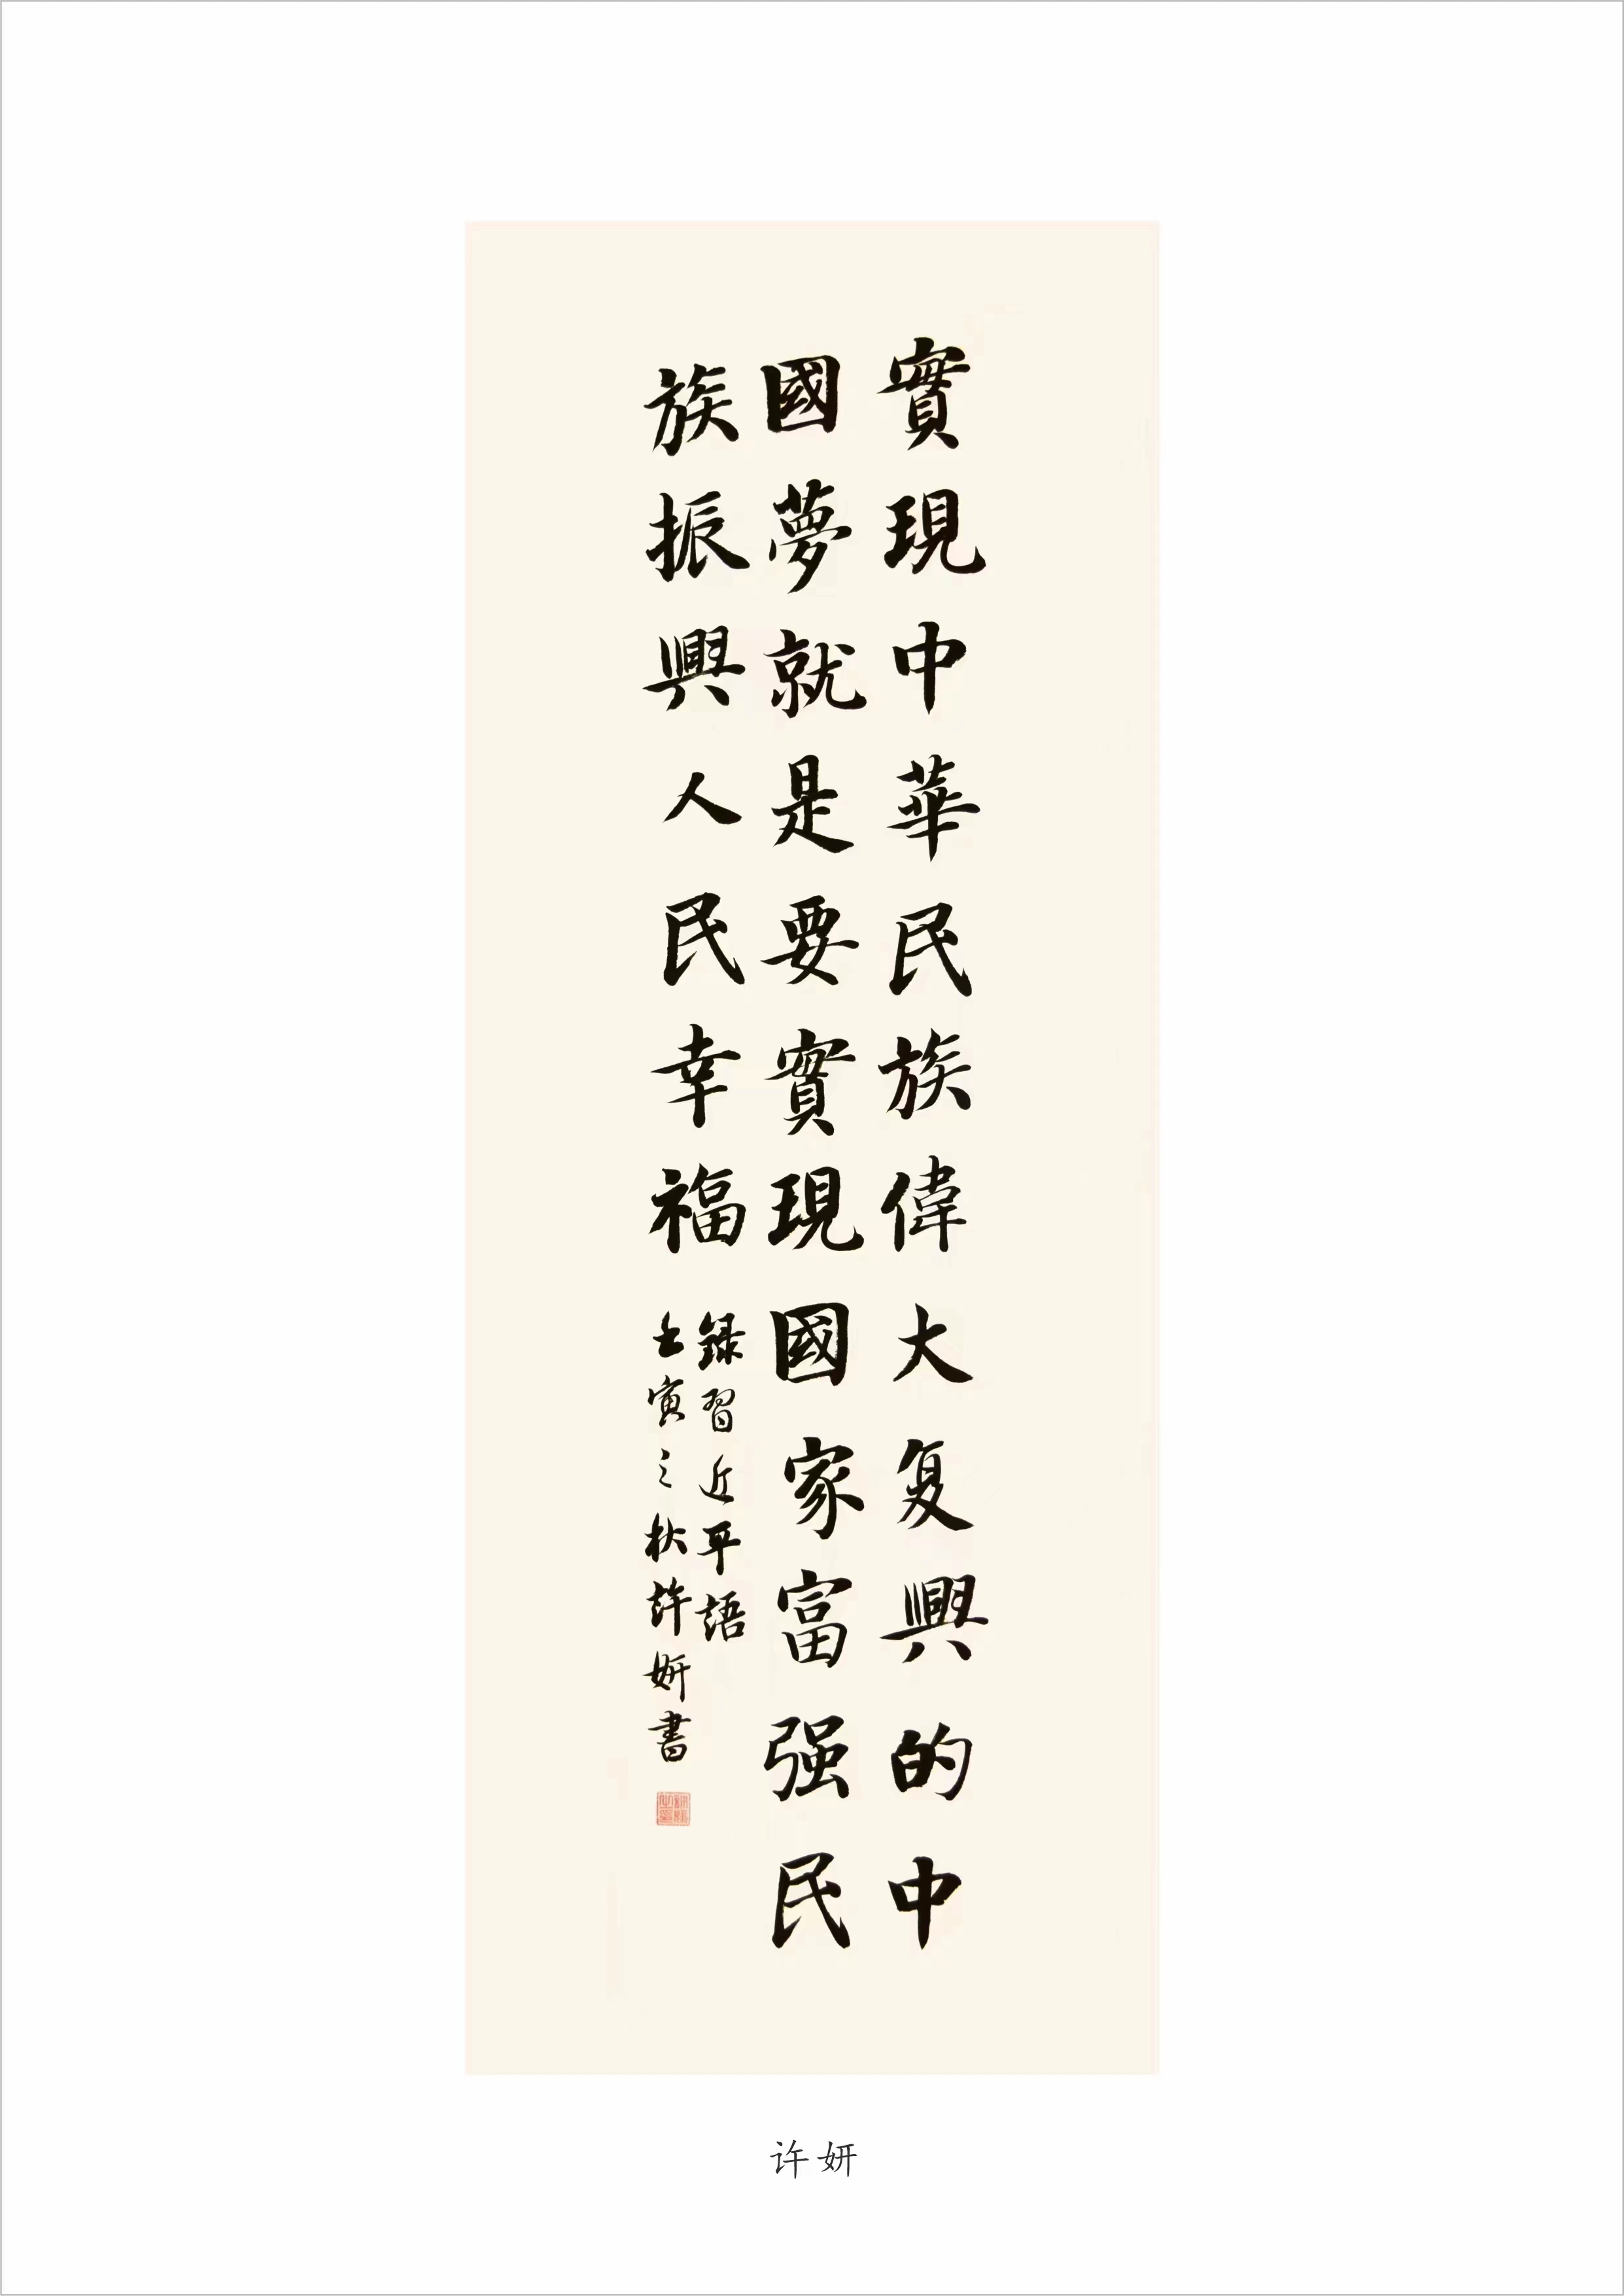 實現中華民族偉大复興的中
國夢就是要實現國家富强民
族振興人民幸福
録習近平語
壬寅之秋許妍書
许妍